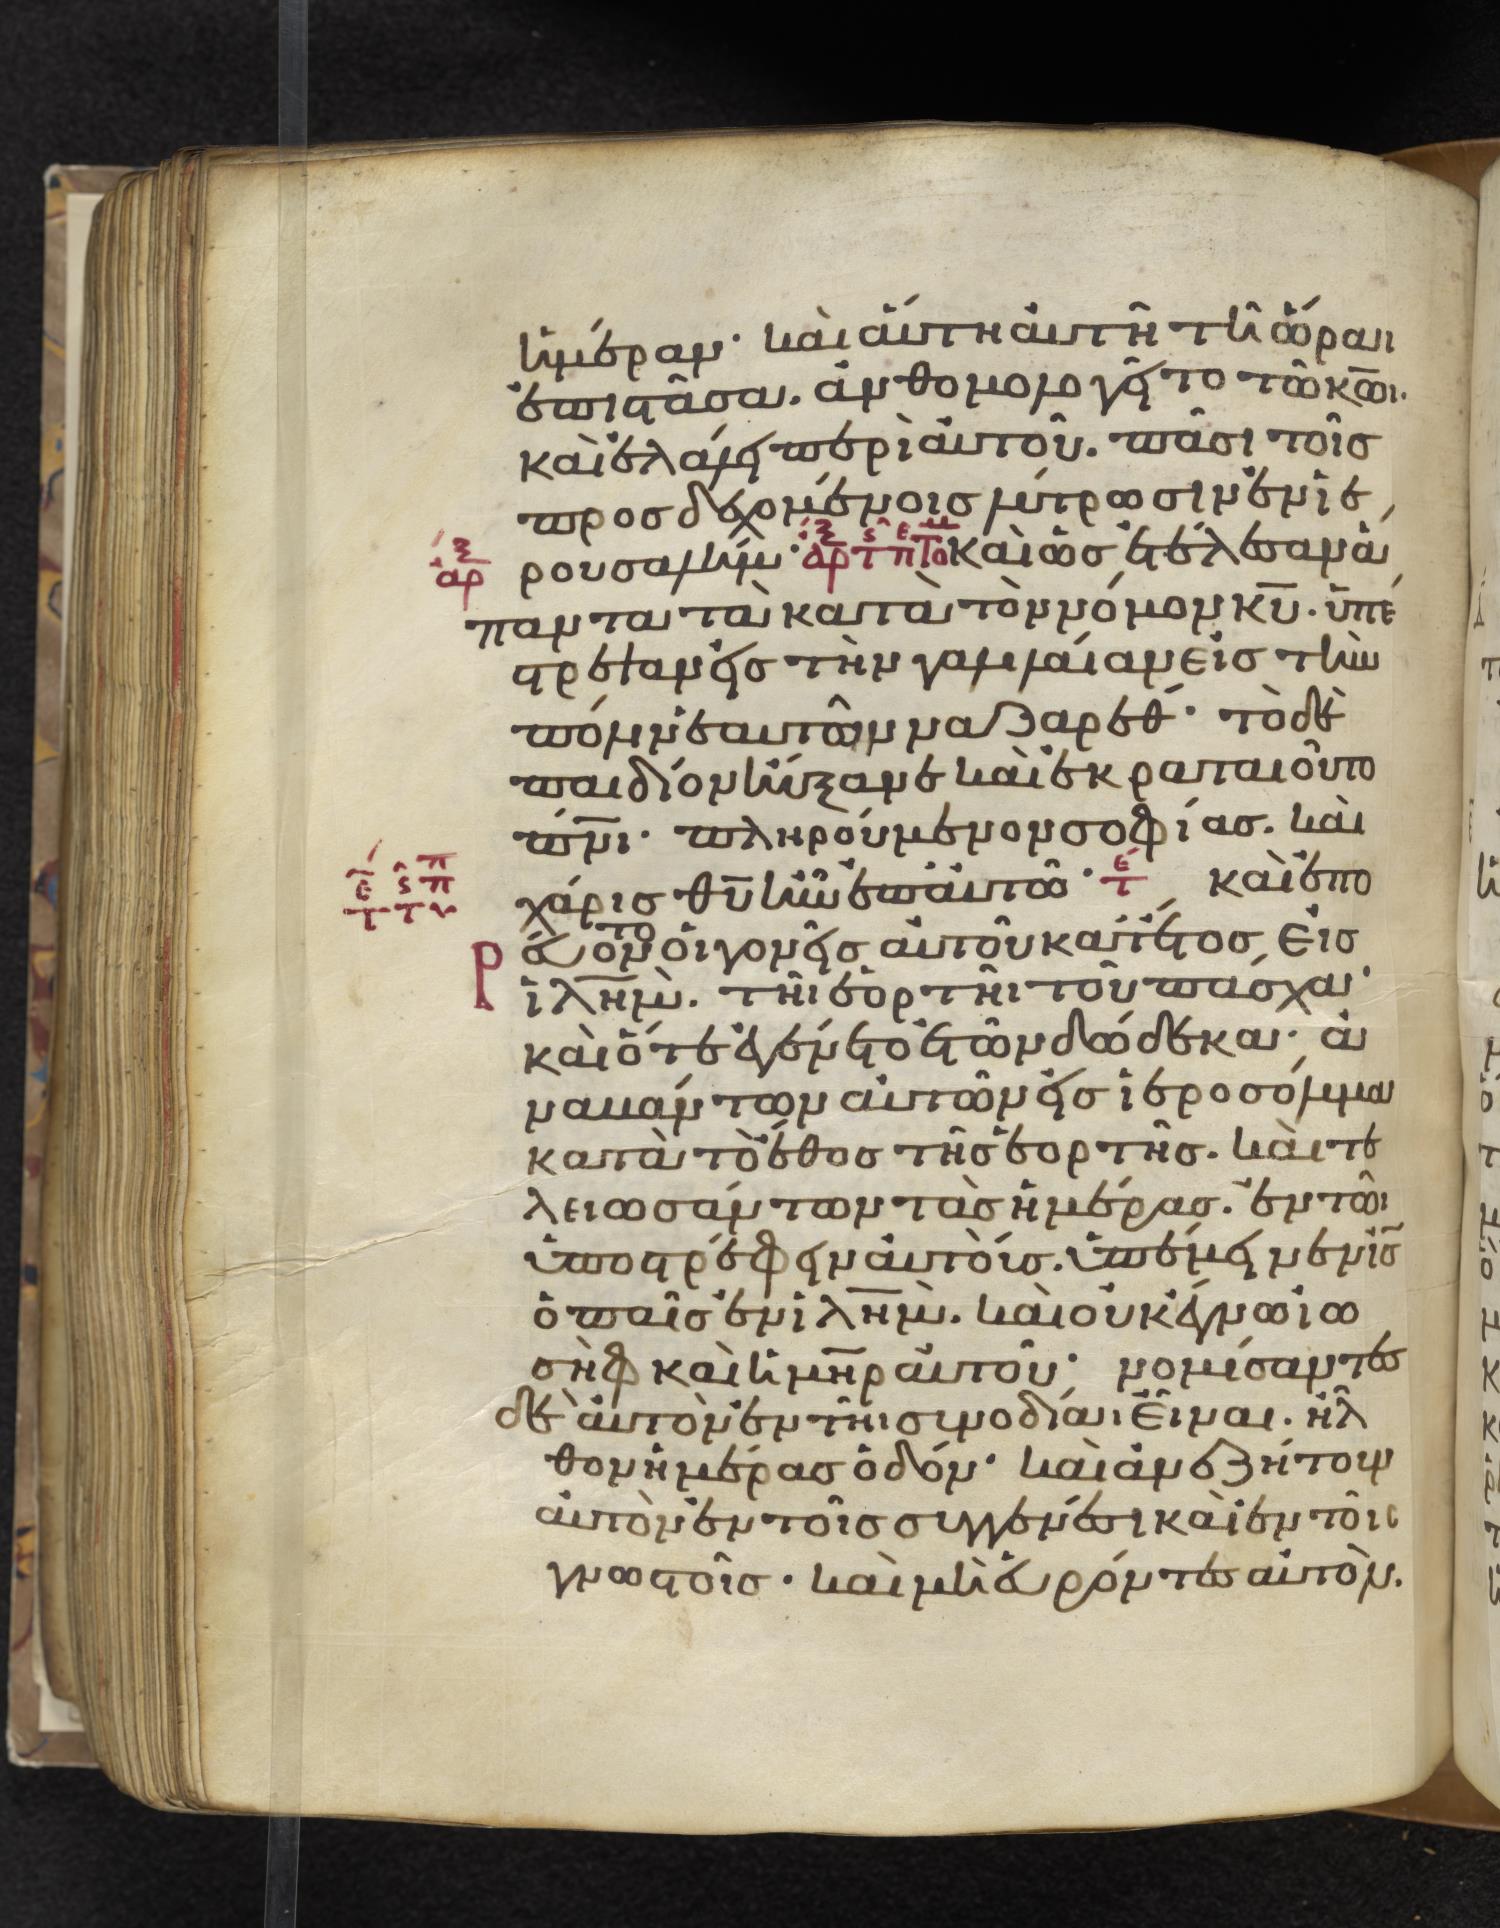 ἡμέραν· καὶ αὕτη αὐτῆ τῆ ὥραι
ἐπιστᾶσα. ἀνθομολογεῖτο τῶ κ̅ωι.
καὶ ἐλάλει περὶ αὐτοῦ. πᾶσι τοῖς
προσδεχομένοις λύτρωσιν ἐν ἰε
αρ ρουσαλήμ· καὶ ὡς ἐτέλεσαν ἅ
παντα τὰ κατὰ τὸν νόμον κ̅υ. ὑπέ
στρεψαν εἰς τὴν γαλιλαίαν εἰς τὴν
πόλιν ἑαυτῶν ναζαρέθ· τὸ δὲ
παιδίον ηὔξανε καὶ ἐκραταιοῦτο
π̅νι· πληρούμενον σοφίας. καὶ
χάρις θ̅υ ἦν ἐπ' αὐτῶ· καὶ ἐπο
ρεύοντο οἱ γονεῖς αὐτοῦ κατ' ἔτος εἰς
ἰλ̅ημ. τῆι ἑορτῆι τοῦ πάσχα·
καὶ ὅτε ἐγένετο ἐτῶν δώδεκα· ἀ
ναβάντων αὐτῶν εἰς ἱεροσόλυμα
κατὰ τὸ ἔθος τῆς ἑορτῆς. καὶ τε
λειωσάντων τὰς ἡμέρας. ἐν τῶι
ὑποστρέφειν αὐτοὺς. ὑπέμεινεν ἰ̅ς
ὁ παῖς ἐν ἰλ̅ημ. καὶ οὐκ ἔγνω ἰω
σὴφ καὶ ἡ μ̅ηρ αὐτοῦ· νομίσαντες
δὲ αὐτὸν ἐν τῆι συνοδίαι εἶναι. ἦλ
θον ἡμέρας ὁδόν· καὶ ἀνεζήτουν
αὐτὸν ἐν τοῖς συγγενέσι καὶ ἐν τοῖς
γνωστοῖς· καὶ μὴ εὑρόντες αὐτὸν.